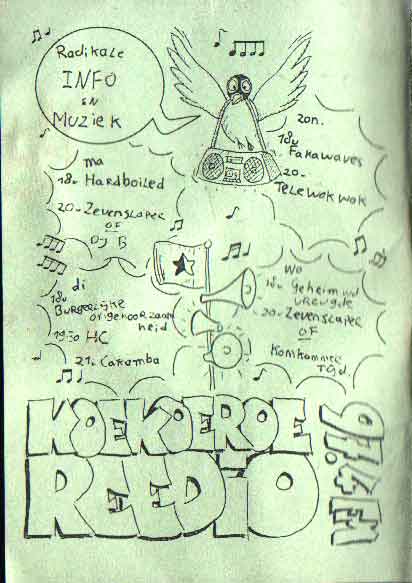 Radikale
INFO
EN
MUZiEK
zon.
18u
Fakawaves
20-
TELEWOKWOK
ma
18u Hardboiled
20- Zevenslaper
OF
DJ B
di
18u
BURGERLijke
ongehoorzaam
heid
1930 HC
21. Caramba
wo
18u Geheim vd
vreugde
20- Zevenslaper
OF
Komkommer
TGd.
KOEKOEROE
REEDIO